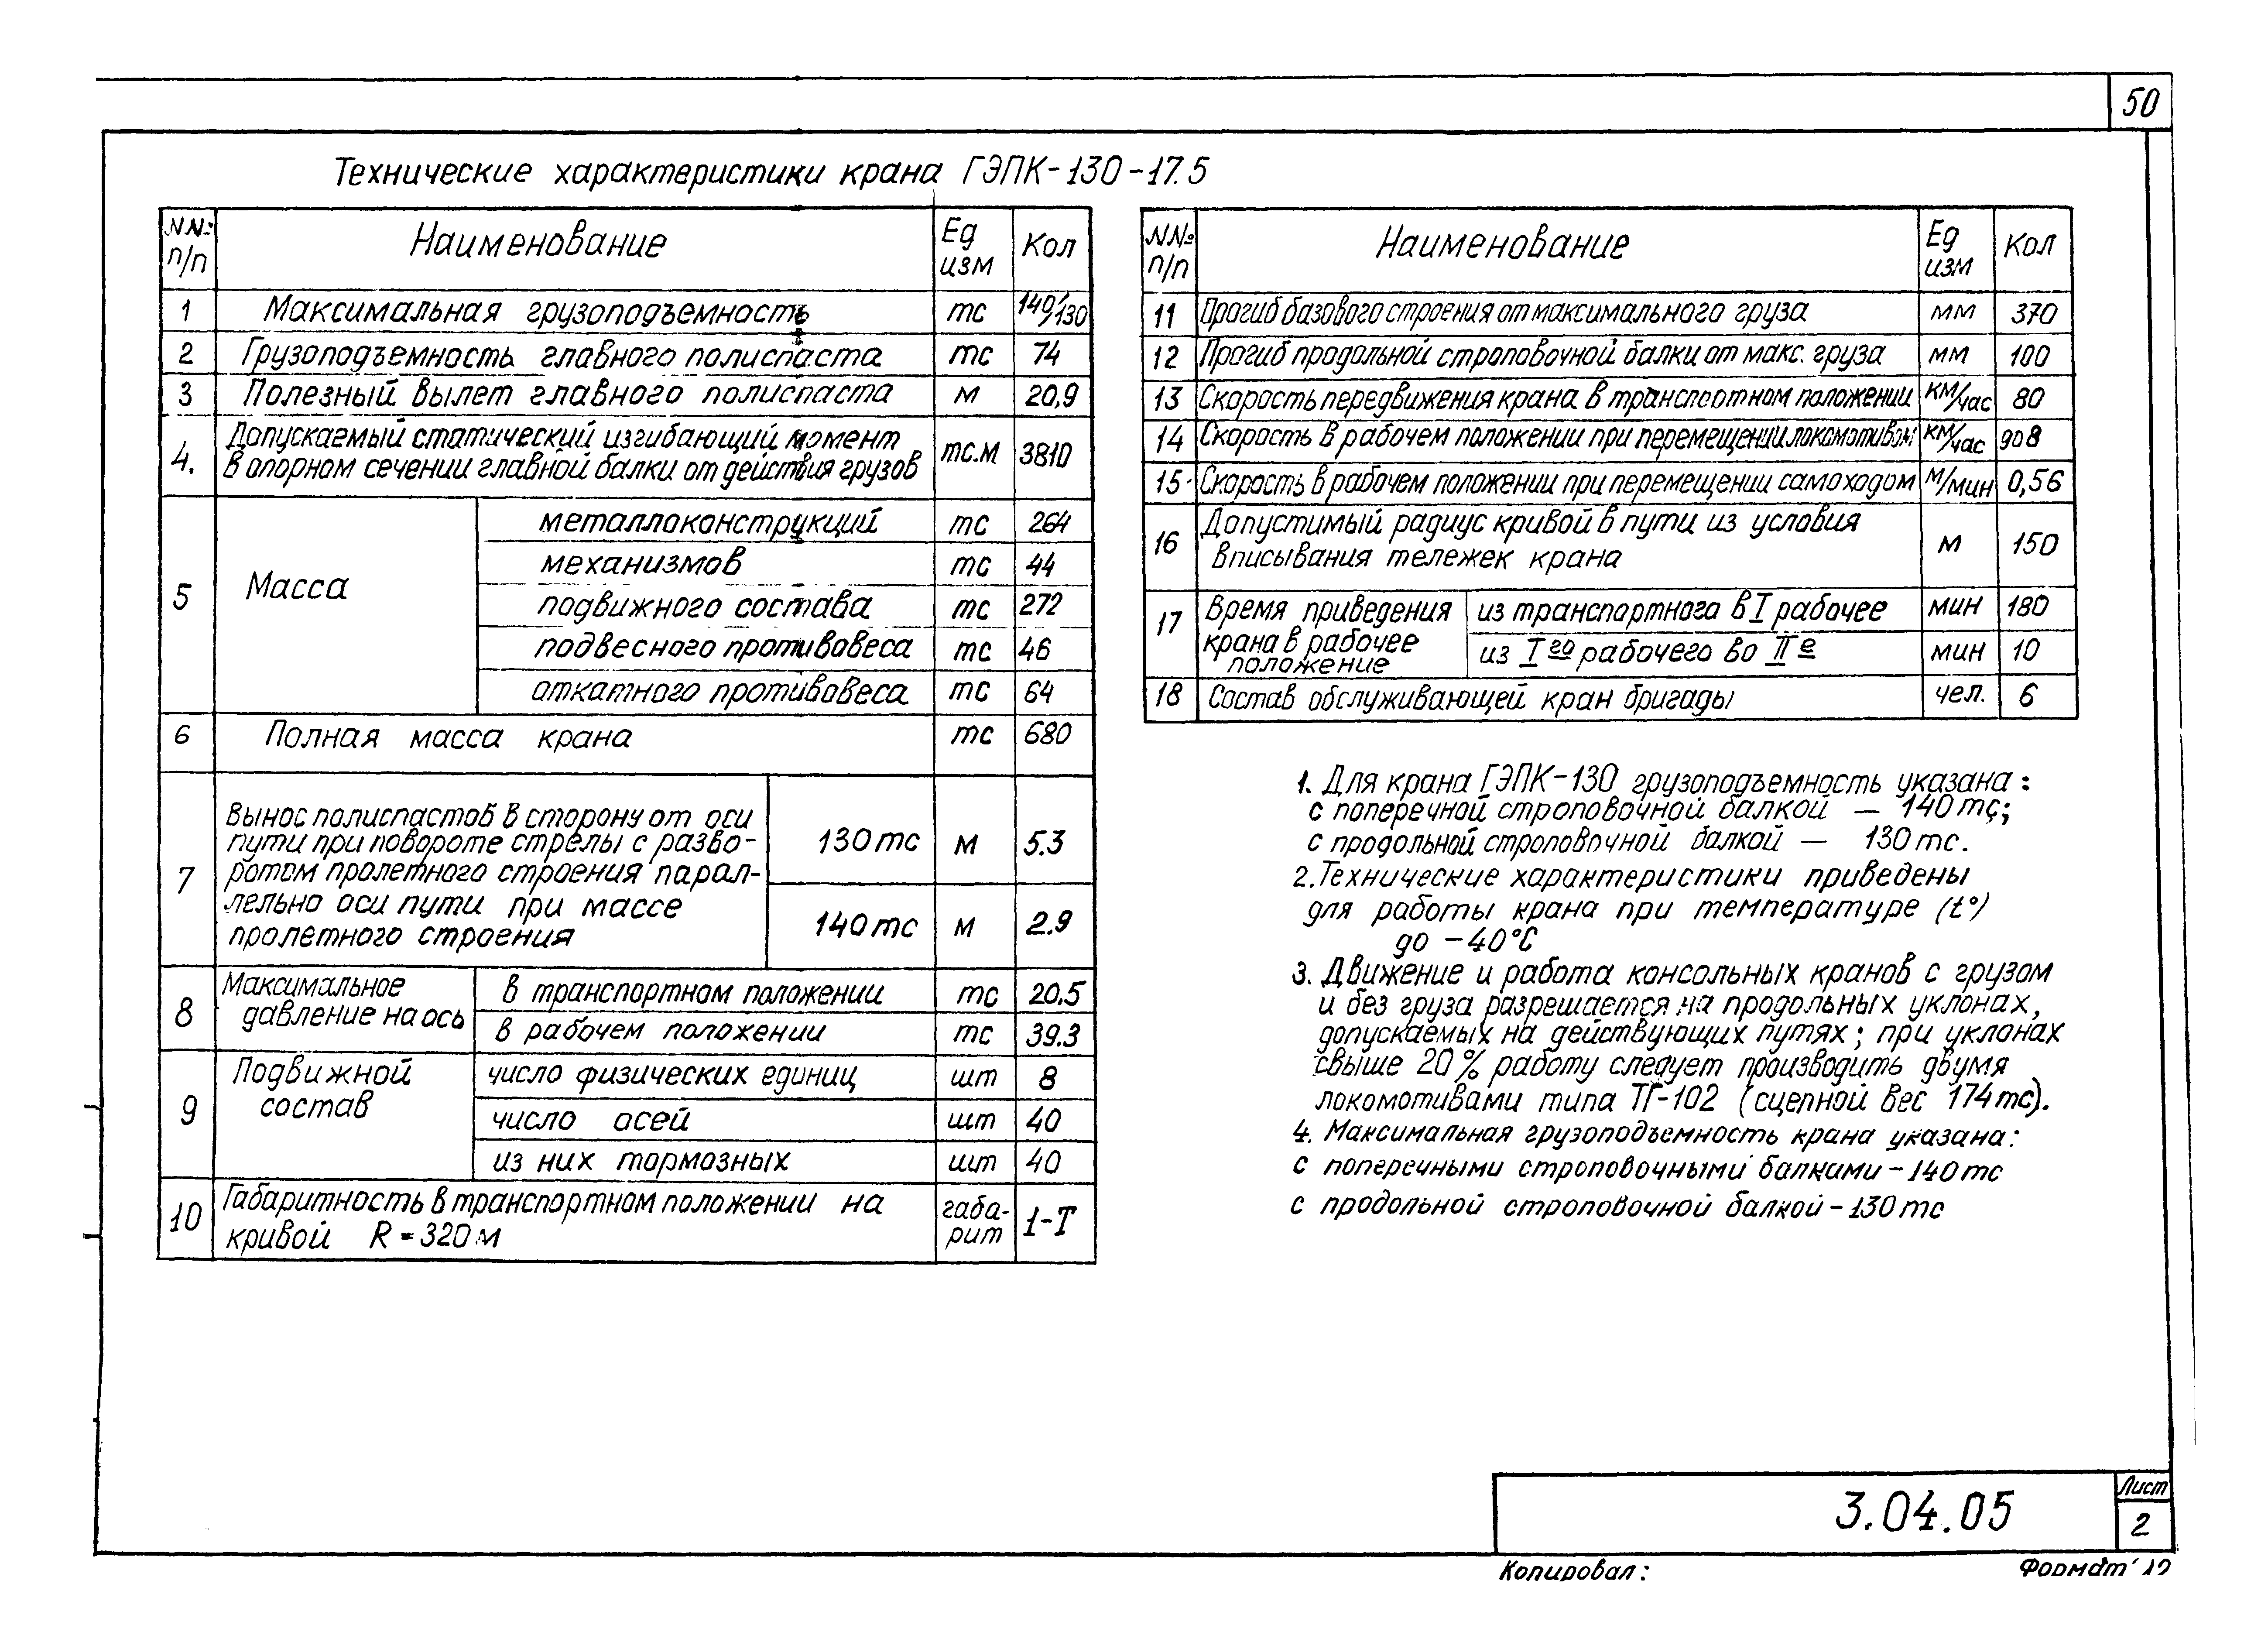 50
Технические характеристики крана ГЭПК-130-17.5
NN: п/п Наименование Ед изм Кол
1 Максимальная грузоподъемность тс 140/130
2 Грузоподъемность главного полиспаста тс 74
3 Полезный вылет главного полиспаста м 20,9
4. Допускаемый статический изгибающий момент
в опорном сечении главной балки от действия грузов тс.м 3810
5 Масса металлоконструкций тс 264
механизмов тс 44
подвижного состава тс 272
подвесного противовеса тс 46
откатного противовеса тс 64
6 Полная масса крана тс 680
7 Вынос полиспастов в сторону от оси
пути при повороте стрелы с разво-
ротом пролетного строения парал-
лельно оси пути при массе
пролетного строения
130тс м 5.3
140тс м 2.9
8 Максимальное
давление на ось
в транспортном положении тс 20,5
в рабочем положении тс 39.3
9 Подвижной
состав
число физических единиц шт 8
число осей шт 40
из них тормозных шт 40
10 Габаритность в транспортном положении на
кривой R = 320м габа-
рит 1-Т
NN№ п/п Наименование Ед изм Кол
11 Прогиб базового строения от максимального груза мм 370
12 Прогиб продольной строповочной балки от макс. груза мм 100
13 Скорость передвижения крана в транспортном положении км/час 80
14 Скорость в рабочем положении при перемещении локомотивом км/час до 8
15 Скорость в рабочем положении при перемещении самоходом м/мин 0,56
16 Допустимый радиус кривой в пути из условия
вписывания тележек крана м 150
17 Время приведения
крана в рабочее
положение
из транспортного в I рабочее мин 180
из Iго рабочего во IIе мин 10
18 Состав обслуживающей кран бригады чел. 6
1. Для крана ГЭПК-130 грузоподъемность указана:
с поперечной строповочной балкой — 140тс;
с продольной строповочной балкой — 130тс.
2. Технические характеристики приведены
для работы крана при температуре (t°)
до -40°С
3. Движение и работа консольных кранов с грузом
и без груза разрешается на продольных уклонах,
допускаемых на действующих путях; при уклонах
свыше 20% работу следует производить двумя
локомотивами типа ТГ-102 (сцепной вес 174тс).
4. Максимальная грузоподъемность крана указана:
с поперечными строповочными балками - 140тс
с продольной строповочной балкой - 130тс
3.04.05
Лист
2
Копировал:
Формат 12